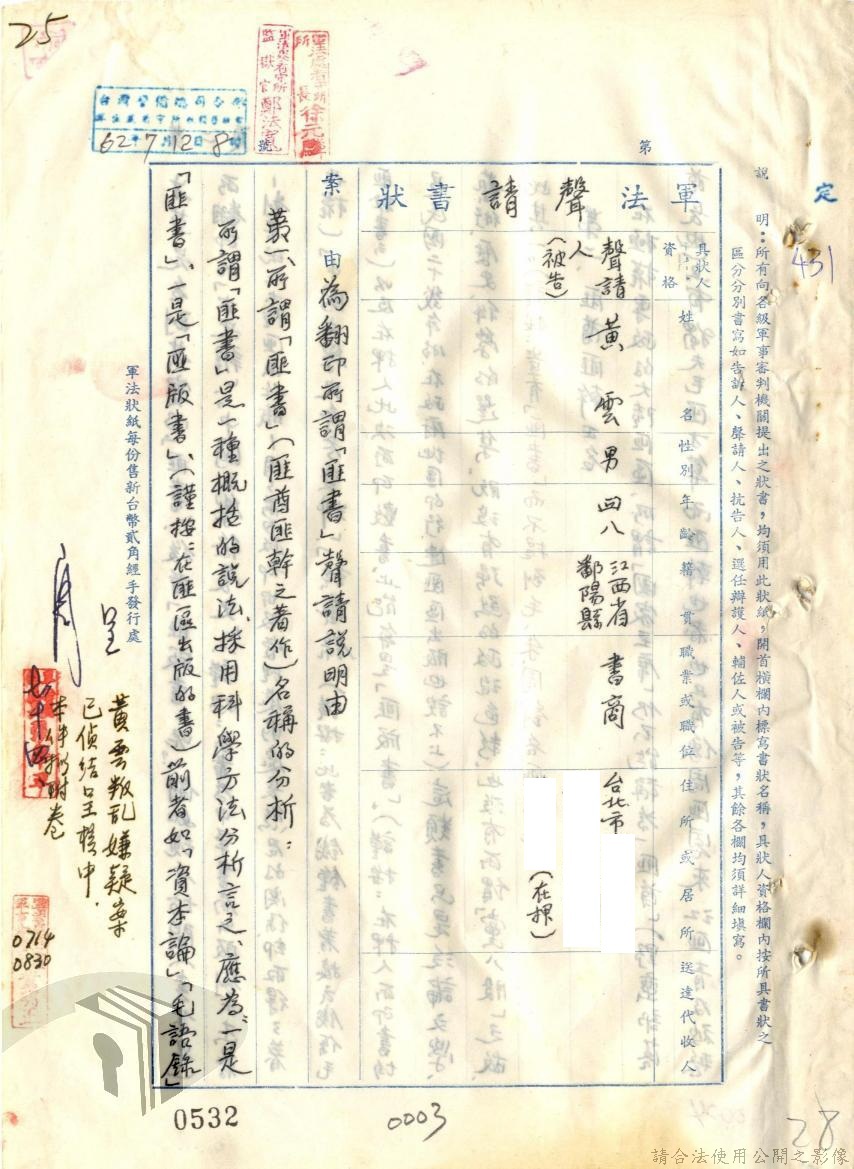 25
定
431
說明：所有向各級軍事審判機關提出之狀書，均須用此狀紙，開首橫欄內標寫書狀名稱，具狀人資格欄內按所具書狀之
區分分別書寫如告訴人、聲請人、抗告人、選任辯護人、輔佐人或被告等，其餘各欄均須詳細填寫。
第 號
軍法 聲請 書狀
具狀人資格
姓名
性別
年齡
籍貫
職業或職位
住所或居所
送達代收人
聲請人（被告）
黃雲
男
四八
江西省鄱陽縣
書商
台北市
（在押）
案由 為翻印所謂「匪書」聲請說明由
第一、所謂「匪書」（匪酋匪幹之著作）名稱的分析：
所謂「匪書」是一種概括的說法，採用科學方法分析言之、應為：一是
「匪書」、一是「匪版書」、（謹按：在匪區出版的書）前者如「資本論」「毛語錄」
軍法狀紙每份售新台幣貳角經手發行處
呈
黃雲叛乱嫌疑案
已偵結呈核中．
七十四
0714
0830
62年7月12日8時
所長徐元麟
監獄官鄭法
0532
0003
28
請合法使用公開之影像